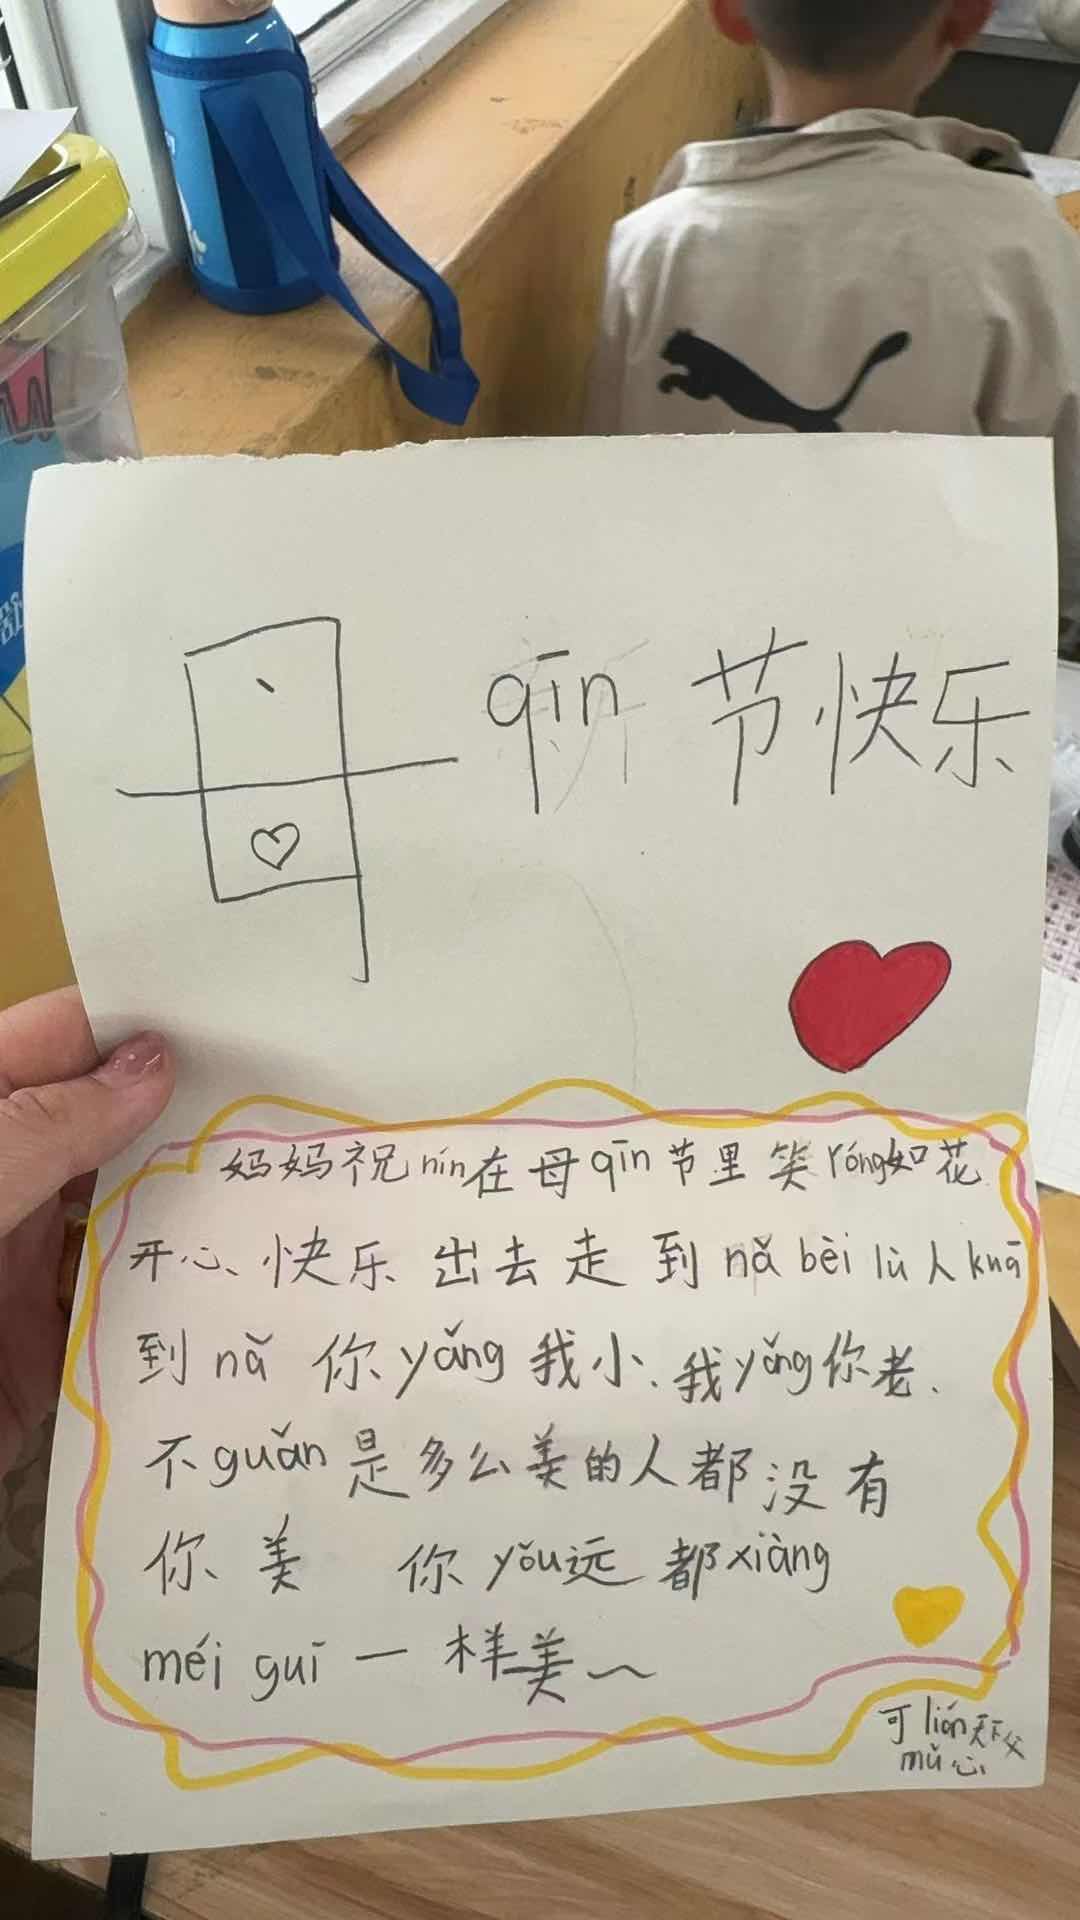 母 qīn 节快乐
妈妈祝nín在母qīn节里笑róng如花
开心、快乐 出去走 到 nǎ bèi lù人kuā
到 nǎ 你 yǎng 我小、我yǎng你老、
不guǎn 是多么美的人都没有
你 美 你 yǒu远 都xiàng
méi guī 一 样美～
可lián天下父
mǔ心